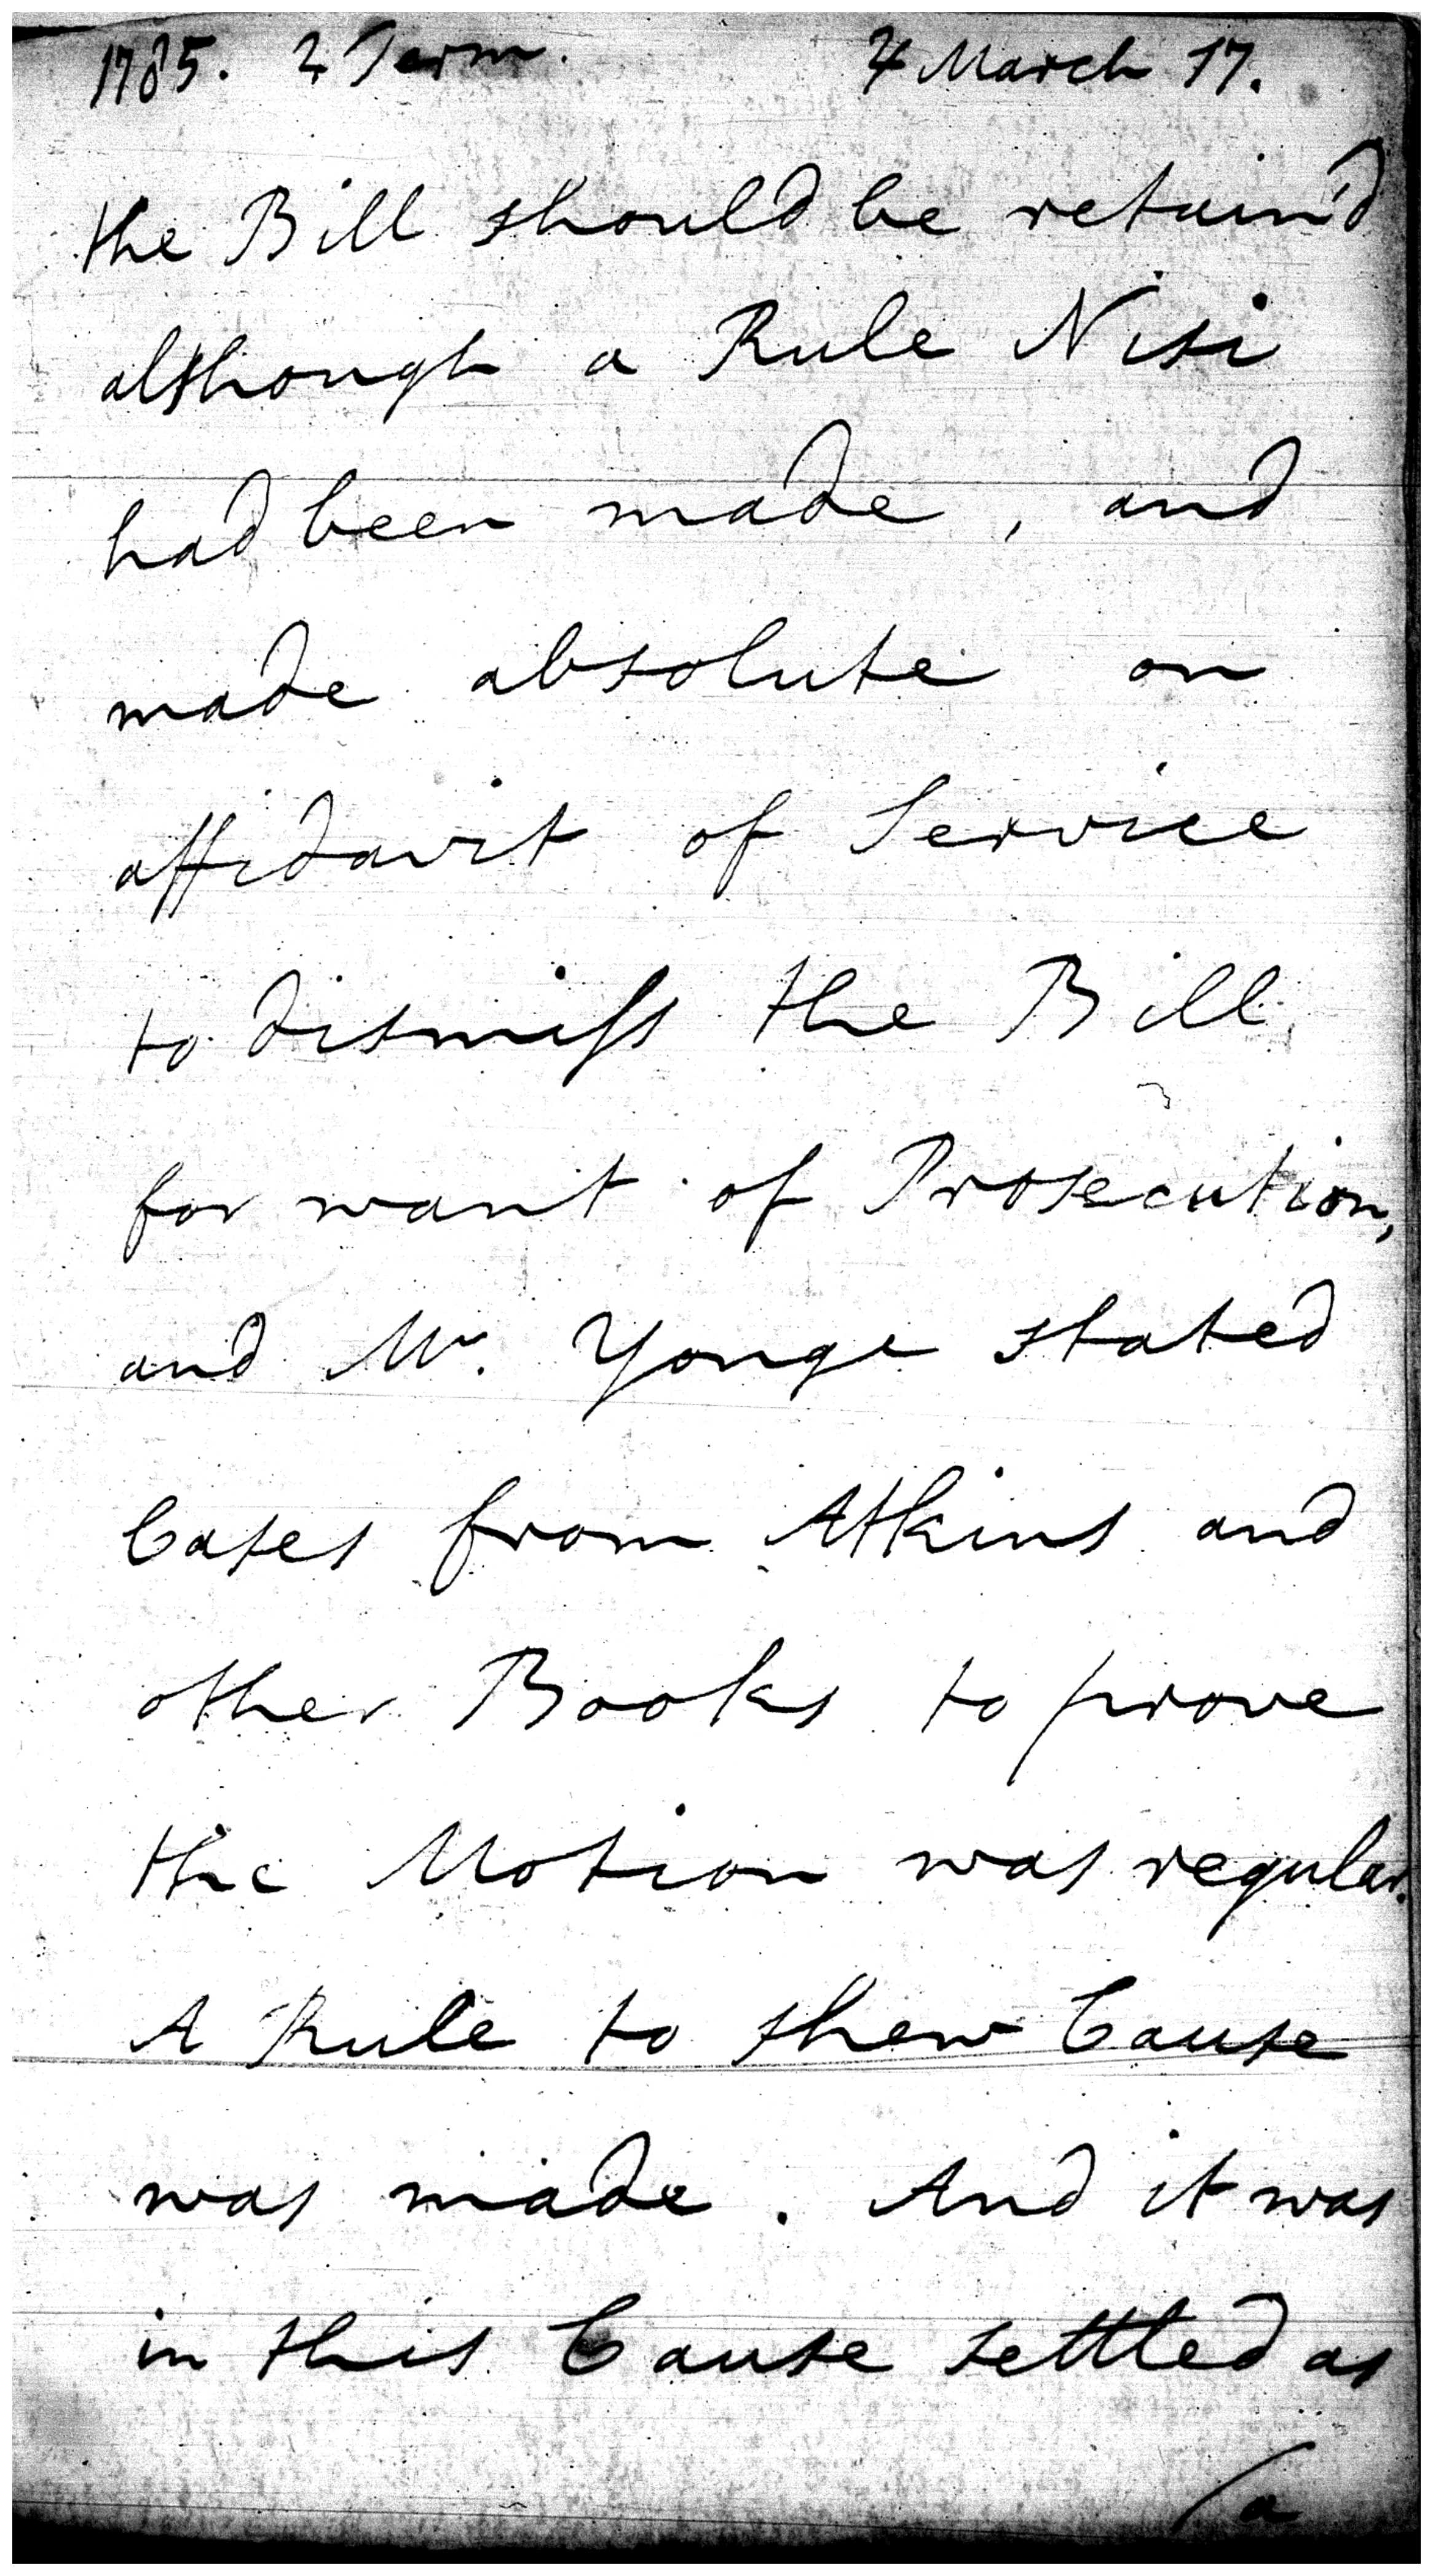 1785. 2 Term. ♃ March 17.
the Bill should be retain'd
although a Rule Nisi
had been made, and
made absolute on
affidavit of Service
to dismiss the Bill
for want of Prosecution,
and Mr. Yonge stated
Cases from Atkins and
other Books to prove
the Motion was regular.
A Rule to shew Cause
was made. And it was
in this Cause settled as
/a